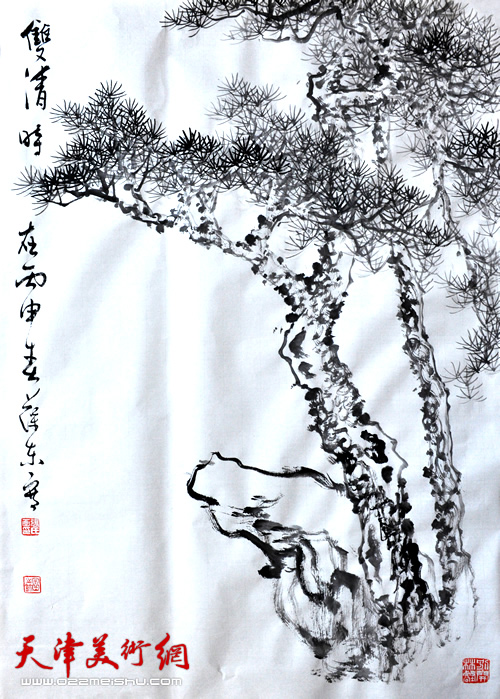 雙清時在丙申春东写
天津美術網
www.022meishu.com